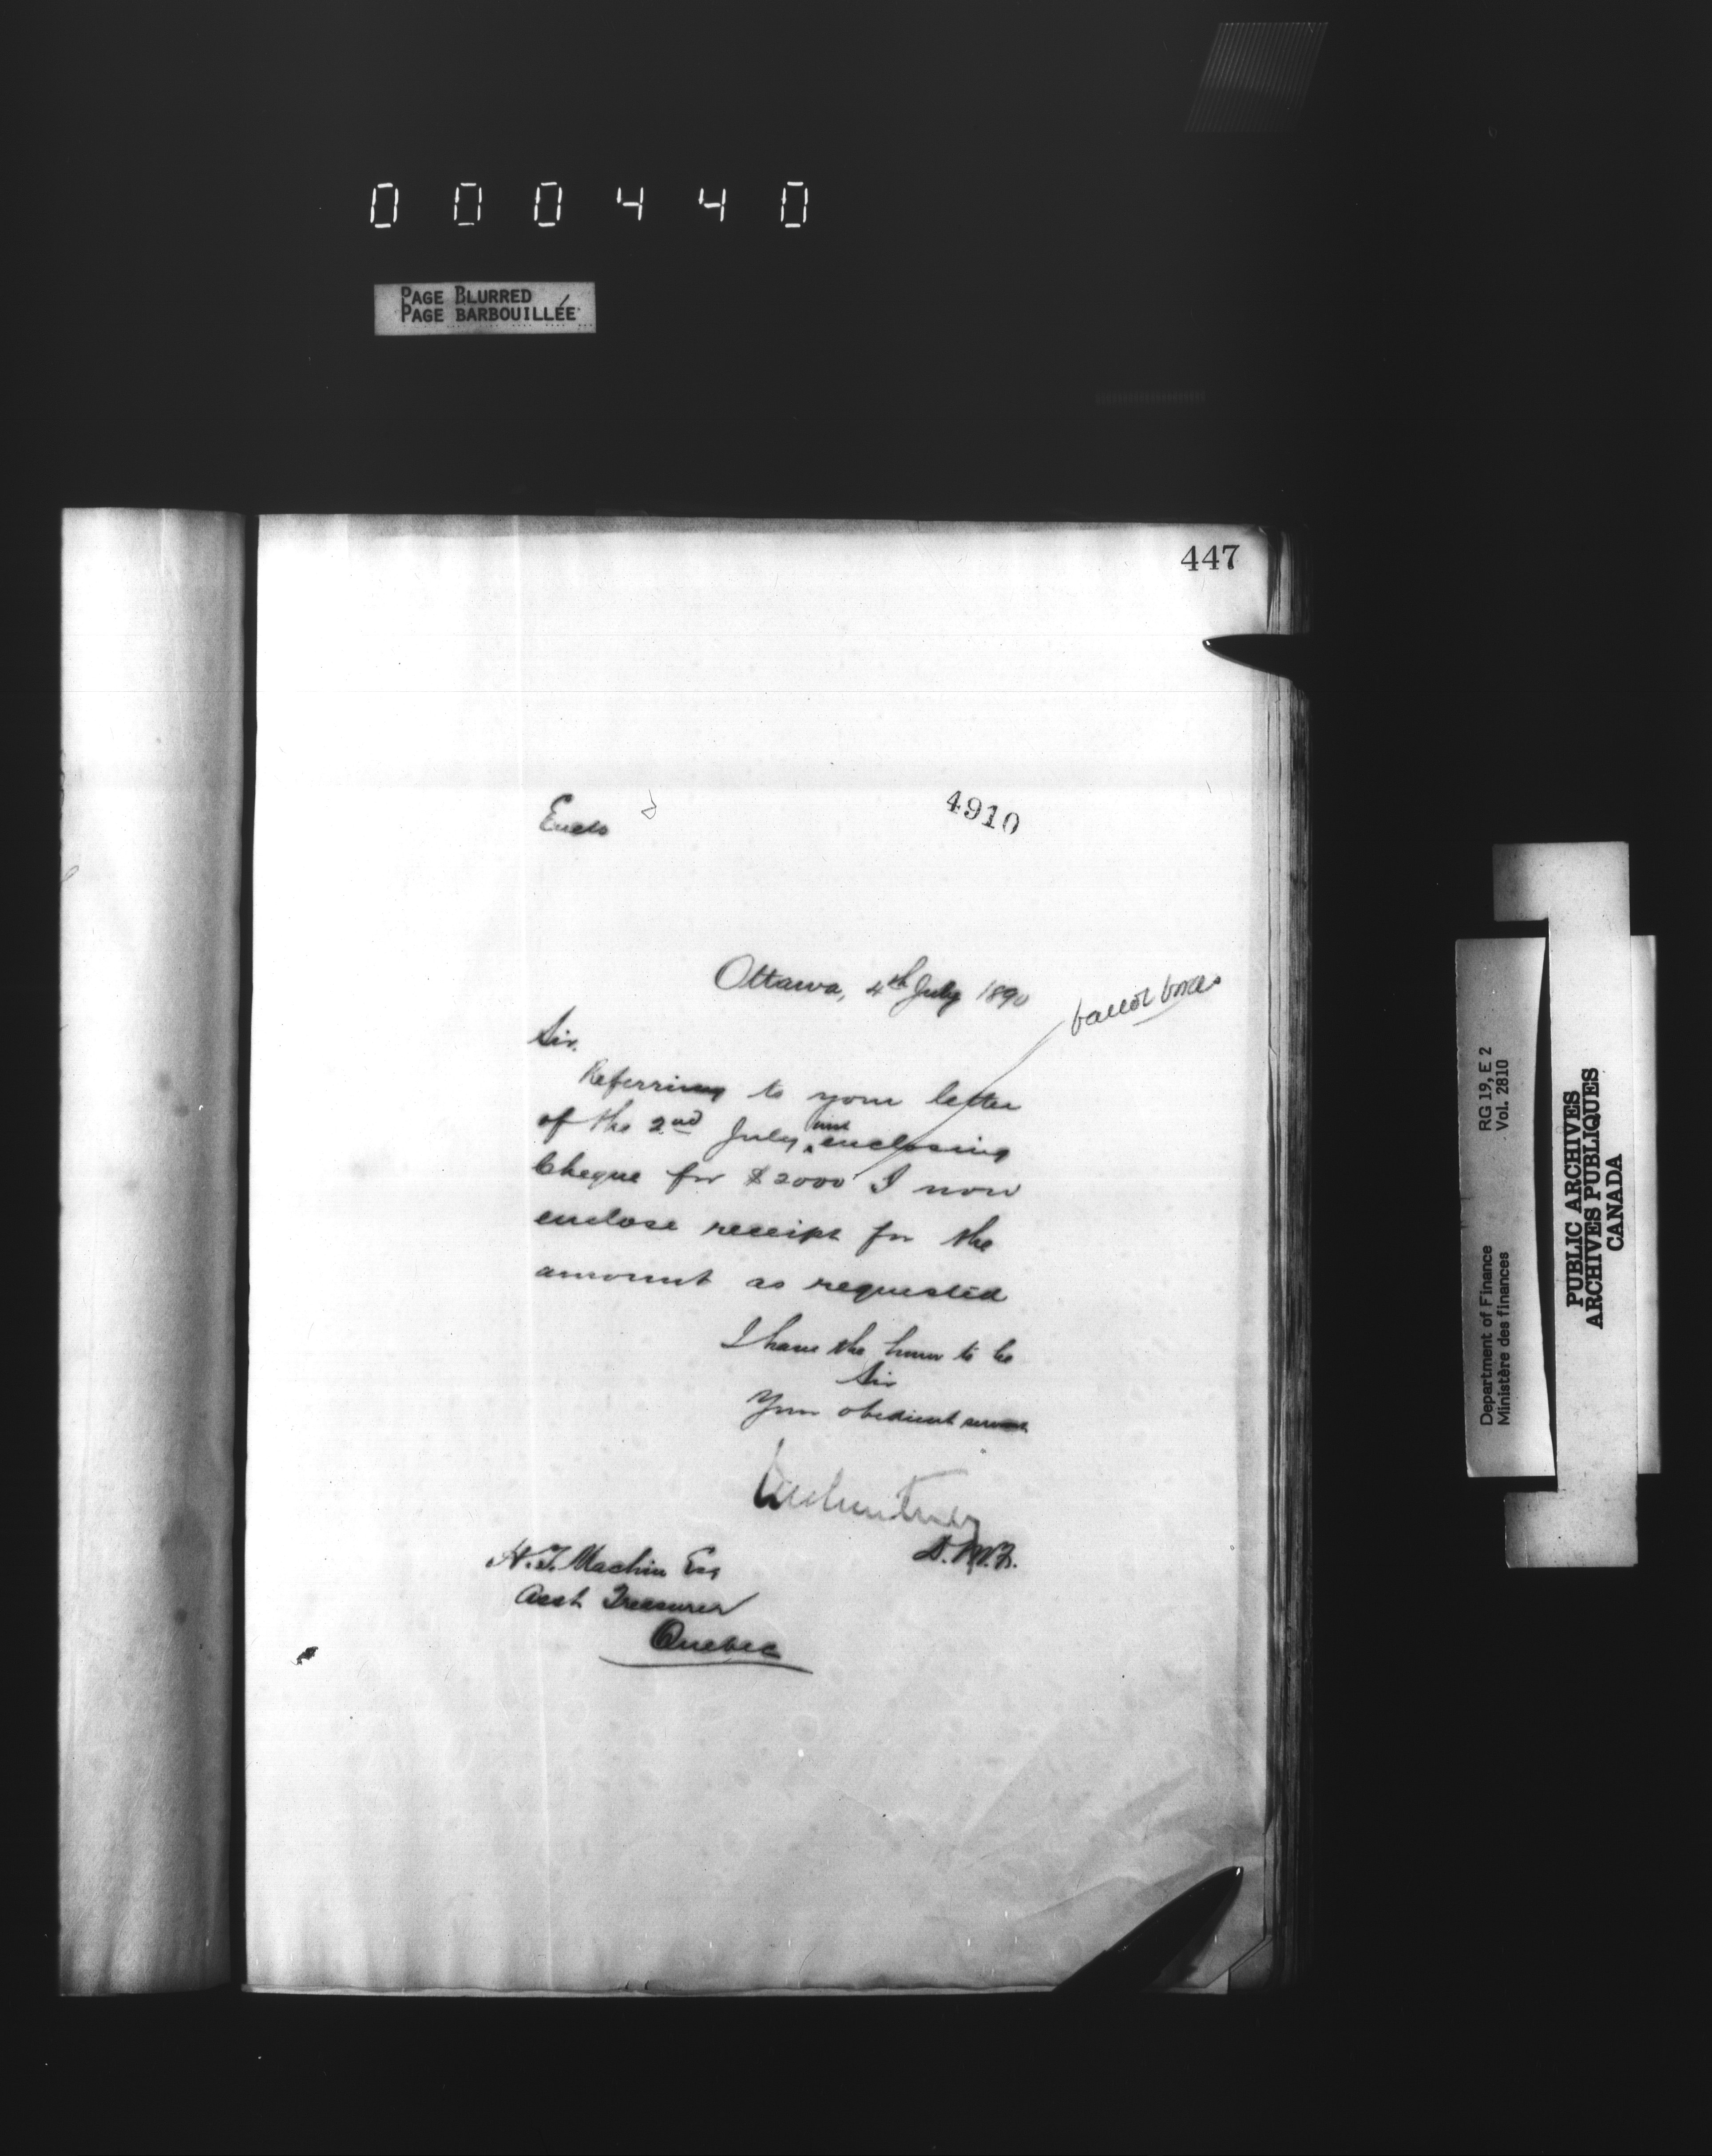 000440
PAGE BLURRED
PAGE BARBOUILLÉE
447
Encls
4910
Ottawa, 4th July 1890
ballot boxes
Sir,
Referring to your letter
of the 2nd July, inst enclosing
Cheque for $2000 I now
enclose receipt for the
amount as requested
I have the honor to be
Sir
Your obedient servant
D.M.F.
H.T. Machin Esq
Asst Treasurer
Quebec
Department of Finance
Ministère des finances
RG 19, E 2
Vol. 2810
PUBLIC ARCHIVES
ARCHIVES PUBLIQUES
CANADA